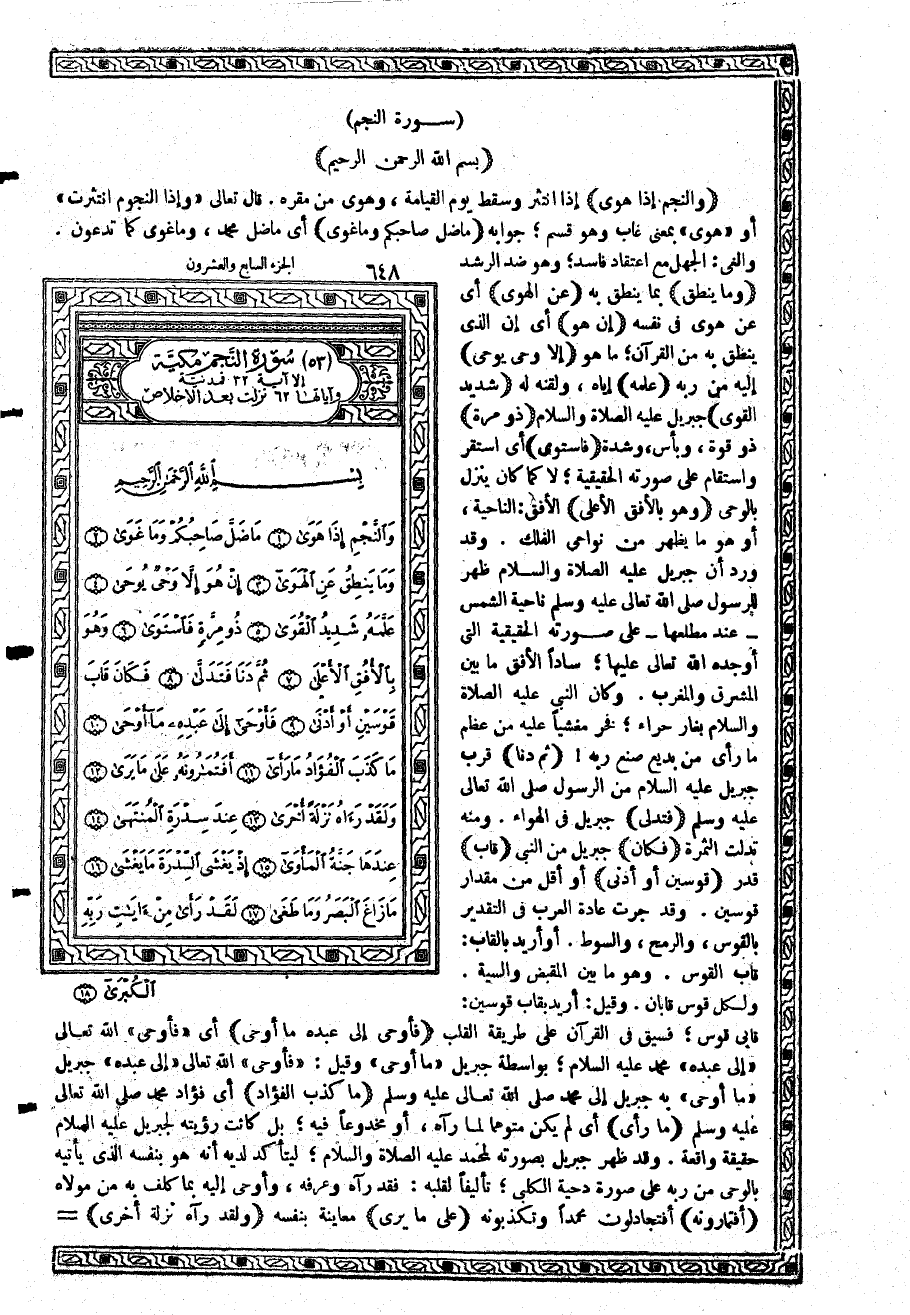 (ســورة النجم)
(بسم الله الرحمن الرحيم)
(والنجم إذا هوى) إذا انتثر وسقط يوم القيامة ، وهوى من مقره . قال تعالى «وإذا النجوم انتثرت»
أو «هوى» بمعنى غاب وهو قسم ؛ جوابه (ماضل صاحبكم وماغوى) أى ماضل محمد ، وماغوى كما تدعون .
والغى : الجهل مع اعتقاد فاسد ؛ وهو ضد الرشد
(وما ينطق) بما ينطق به (عن الهوى) أى
عن هوى فى نفسه (إن هو) أى إن الذى
ينطق به من القرآن ؛ ما هو (إلا وحى يوحى)
إليه من ربه (علمه) إياه ، ولقنه له (شديد
القوى) جبريل عليه الصلاة والسلام (ذو مرة)
ذو قوة ، وبأس ، وشدة (فاستوى) أى استقر
واستقام على صورته الحقيقية ؛ لا كما كان ينزل
بالوحى (وهو بالأفق الأعلى) الأفق : الناحية ،
أو هو ما يظهر من نواحى الفلك . وقد
ورد أن جبريل عليه الصلاة والسلام ظهر
للرسول صلى الله تعالى عليه وسلم ناحية الشمس
ـ عند مطلعها ـ على صورته الحقيقية التى
أوجده الله تعالى عليها ؛ ساداً الأفق ما بين
المشرق والمغرب . وكان النبى عليه الصلاة
والسلام بغار حراء ؛ فخر مغشياً عليه من عظم
ما رأى من بديع صنع ربه ! (ثم دنا) قرب
جبريل عليه السلام من الرسول صلى الله تعالى
عليه وسلم (فتدلى) جبريل فى الهواء . ومنه
تدلت الثمرة (فكان) جبريل من النبى (قاب)
قدر (قوسين أو أدنى) أو أقل من مقدار
قوسين . وقد جرت عادة العرب فى التقدير
بالقوس ، والرمح ، والسوط . أو أريد بالقاب :
قاب القوس . وهو ما بين المقبض والسية .
ولكل قوس قابان . وقيل : أريد بقاب قوسين :
الجزء السابع والعشرون
٦٤٨
(٥٣) سُورَة النَّجم مكيَّة
إلا آية ٣٢ فمدنية
وآياتها ٦٢ نزلت بعد الإخلاص
بِسْمِ ٱللَّهِ ٱلرَّحْمَٰنِ ٱلرَّحِيمِ
وَٱلنَّجْمِ إِذَا هَوَىٰ ۝١ مَا ضَلَّ صَاحِبُكُمْ وَمَا غَوَىٰ ۝٢
وَمَا يَنطِقُ عَنِ ٱلْهَوَىٰٓ ۝٣ إِنْ هُوَ إِلَّا وَحْىٌ يُوحَىٰ ۝٤
عَلَّمَهُۥ شَدِيدُ ٱلْقُوَىٰ ۝٥ ذُو مِرَّةٍ فَٱسْتَوَىٰ ۝٦ وَهُوَ
بِٱلْأُفُقِ ٱلْأَعْلَىٰ ۝٧ ثُمَّ دَنَا فَتَدَلَّىٰ ۝٨ فَكَانَ قَابَ
قَوْسَيْنِ أَوْ أَدْنَىٰ ۝٩ فَأَوْحَىٰٓ إِلَىٰ عَبْدِهِۦ مَآ أَوْحَىٰ ۝١٠
مَا كَذَبَ ٱلْفُؤَادُ مَا رَأَىٰٓ ۝١١ أَفَتُمَٰرُونَهُۥ عَلَىٰ مَا يَرَىٰ ۝١٢
وَلَقَدْ رَءَاهُ نَزْلَةً أُخْرَىٰ ۝١٣ عِندَ سِدْرَةِ ٱلْمُنتَهَىٰ ۝١٤
عِندَهَا جَنَّةُ ٱلْمَأْوَىٰٓ ۝١٥ إِذْ يَغْشَى ٱلسِّدْرَةَ مَا يَغْشَىٰ ۝١٦
مَا زَاغَ ٱلْبَصَرُ وَمَا طَغَىٰ ۝١٧ لَقَدْ رَأَىٰ مِنْ ءَايَٰتِ رَبِّهِ
ٱلْكُبْرَىٰٓ ۝١٨
قابى قوس ؛ فسيق فى القرآن على طريقة القلب (فأوحى إلى عبده ما أوحى) أى «فأوحى» الله تعالى
«إلى عبده» محمد عليه السلام ؛ بواسطة جبريل «ما أوحى» وقيل : «فأوحى» الله تعالى «إلى عبده» جبريل
«ما أوحى» به جبريل إلى محمد صلى الله تعالى عليه وسلم (ما كذب الفؤاد) أى فؤاد محمد صلى الله تعالى
عليه وسلم (ما رأى) أى لم يكن متوهما لما رآه ، أو مخدوعاً فيه ؛ بل كانت رؤيته لجبريل عليه السلام
حقيقة واقعة . وقد ظهر جبريل بصورته لمحمد عليه الصلاة والسلام ؛ ليتأكد لديه أنه هو بنفسه الذى يأتيه
بالوحى من ربه على صورة دحية الكلبى ؛ تأليفاً لقلبه : فقد رآه وعرفه ، وأوحى إليه بما كلف به من مولاه
(أفتمارونه) أفتجادلون محمداً وتكذبونه (على ما يرى) معاينة بنفسه (ولقد رآه نزلة أخرى) =